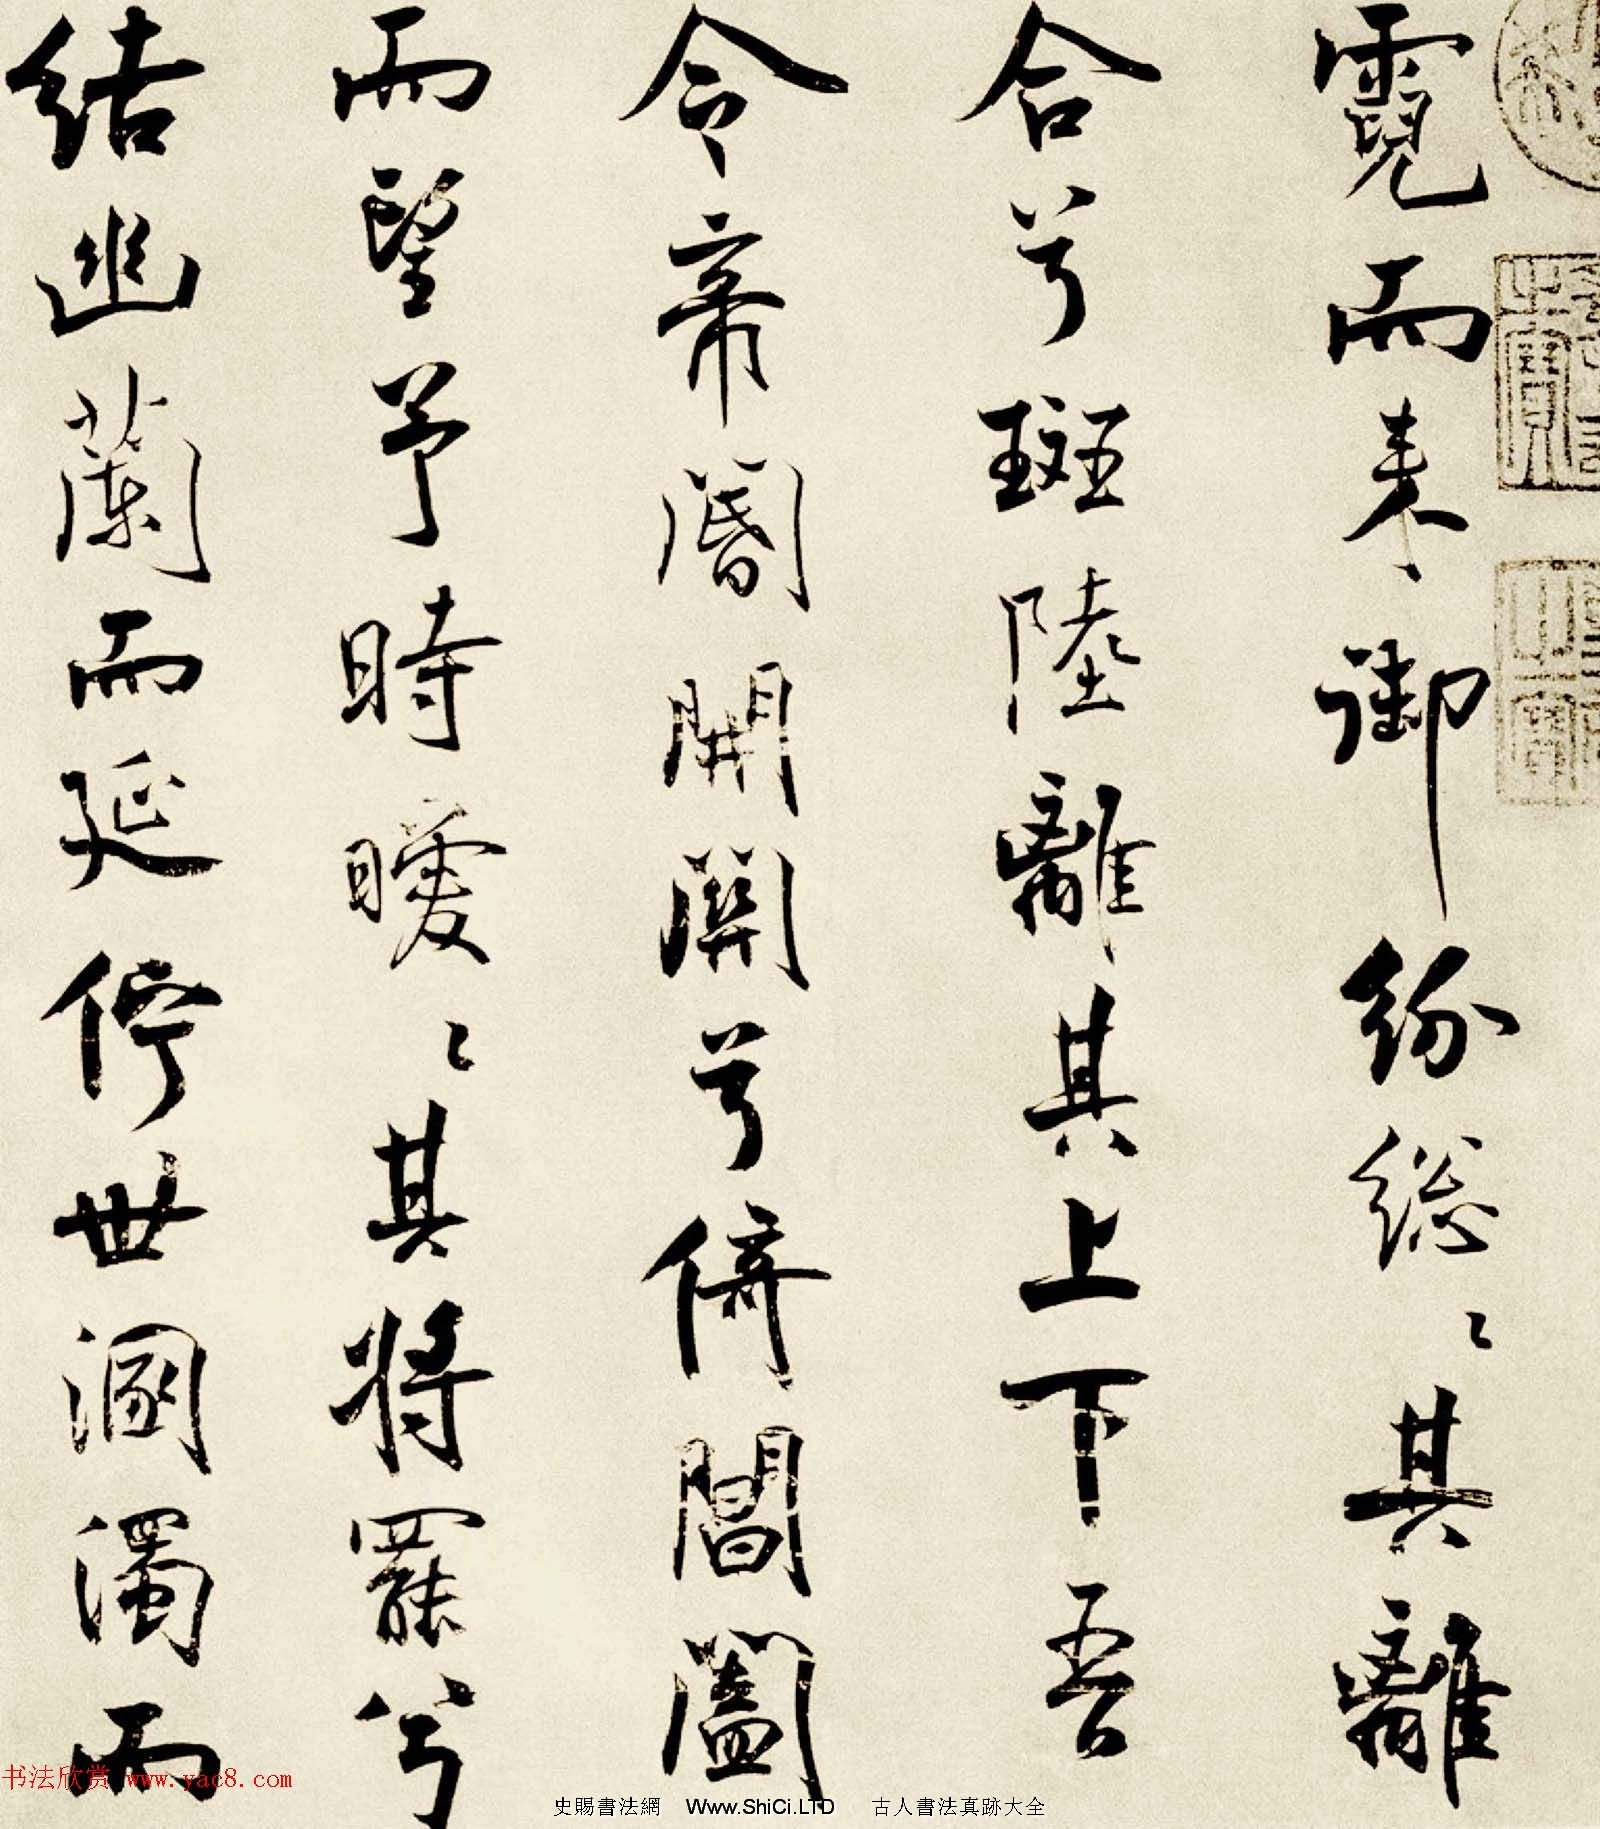 霓而来御紛総〻其離
合兮斑陸離其上下吾
令帝閽開關兮倚閶闔
而望予時曖〻其将罷兮
結幽蘭而延佇世溷濁而
书法欣赏 www.yac8.com
史賜書法網 Www.ShiCi.LTD 古人書法真跡大全